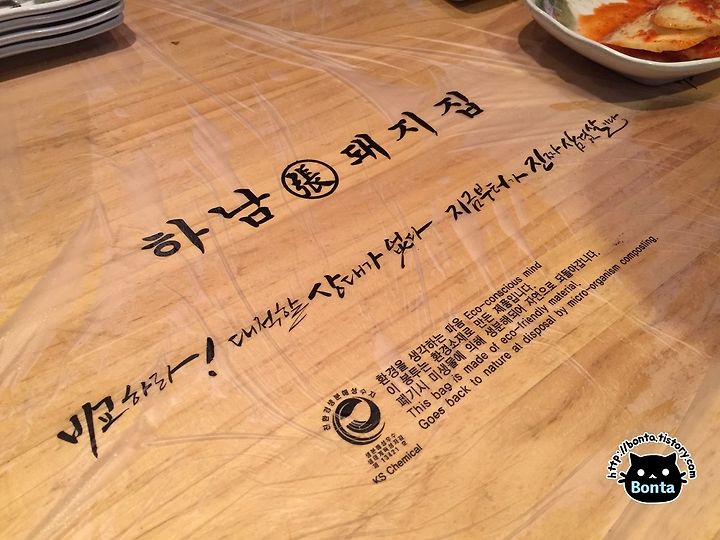 하남 張 돼지집
비교하라! 대적할 상대가 없다 지금부터가 진짜 삼겹살이다
환경을 생각하는 마음 Eco-conscious mind
이 봉투는 환경소재로 만든 제품입니다.
폐기시 미생물에 의해 생분해되어 자연으로 되돌아갑니다.
This bag is made of eco-friendly material.
Goes back to nature at disposal by micro-organism composting.
친환경생분해성수지
생분해성수지
제 13421 호
KS Chemical
http://bonta.tistory.com
Bonta